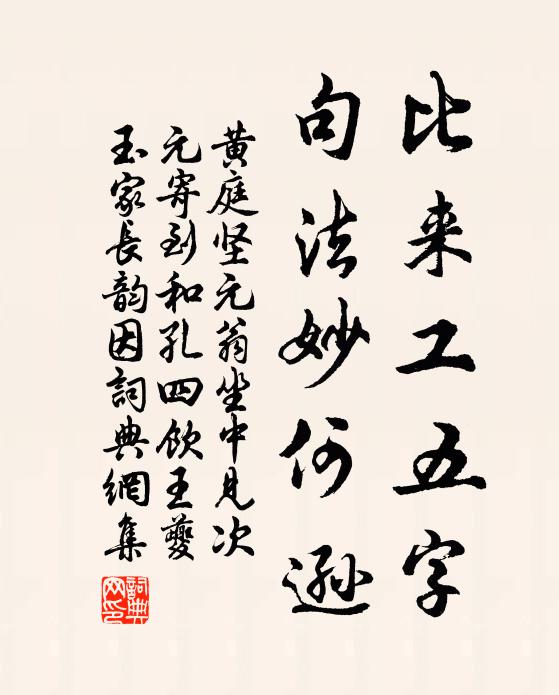 比来工五字
句法妙何遜
黄庭坚元翁坐中見次
元寄到和孔四飲王夔
玉家長韵因詞典網集
詞典
網印